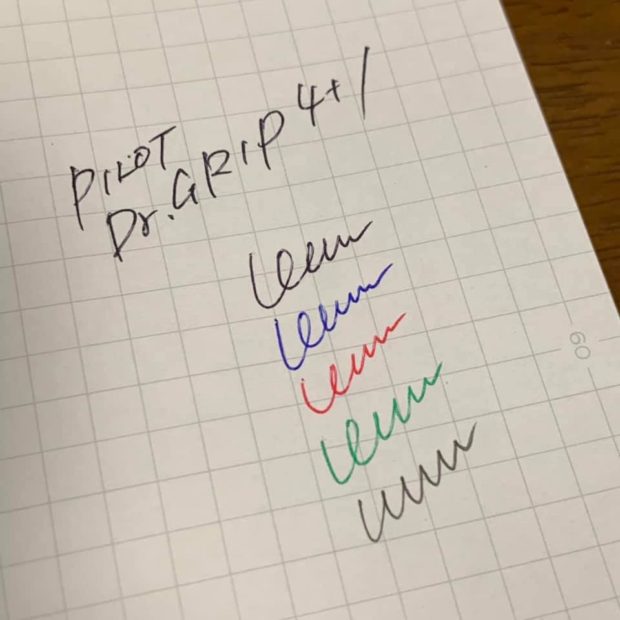 PILOT
Dr. GRIP 4+1
60